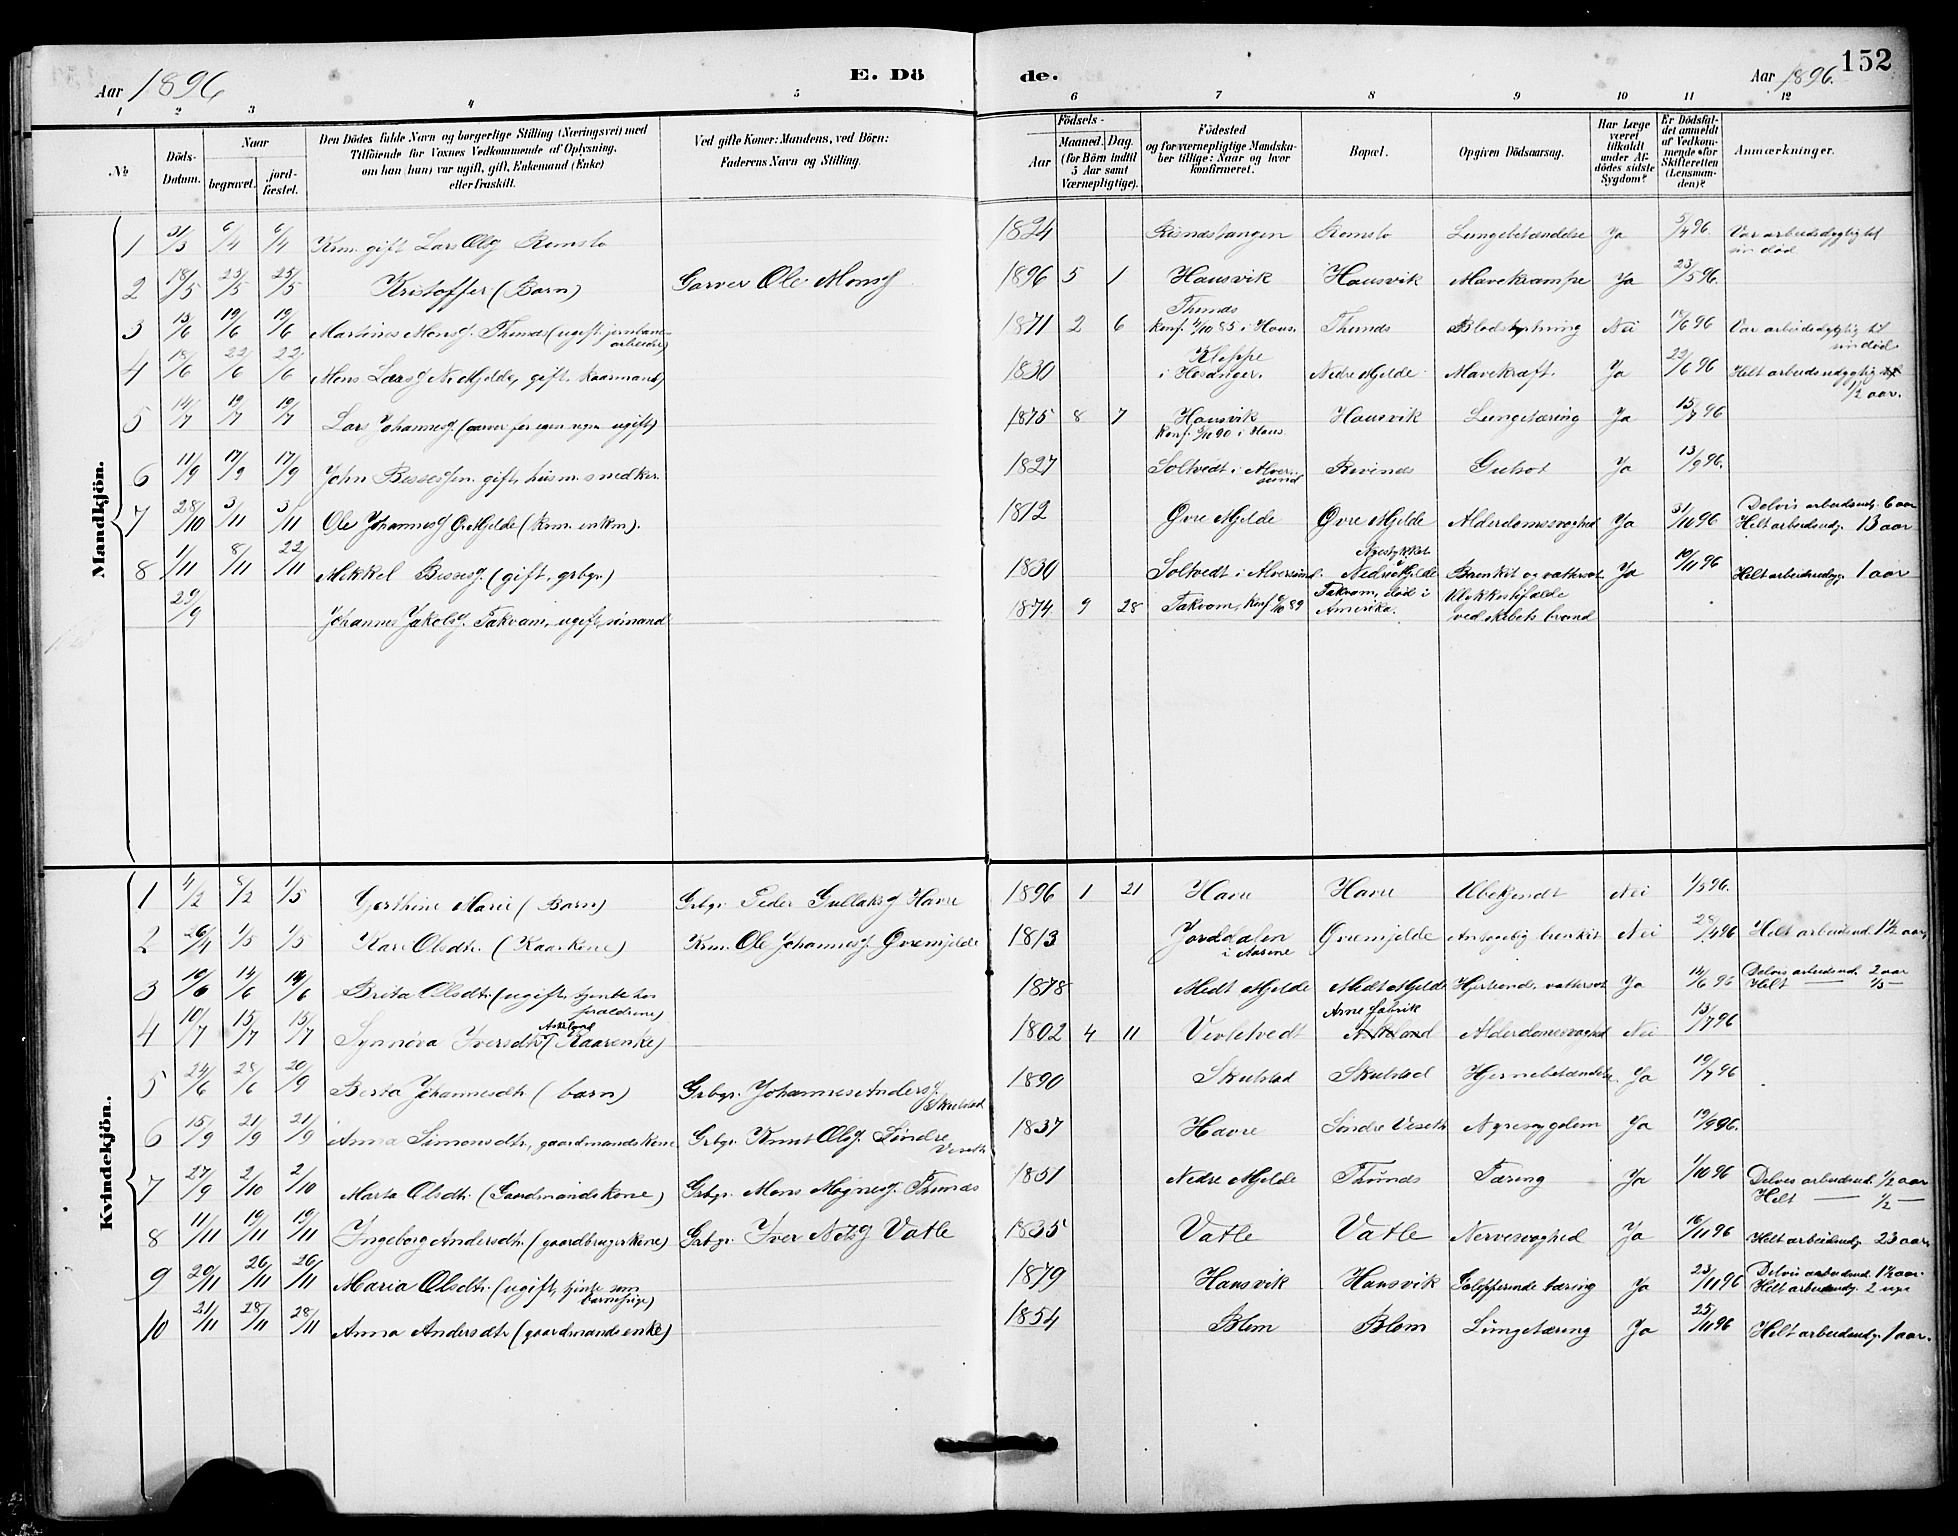 Aar 1896
E. Dö
de.
Aar 1896.
152
1 2 3 4 5 6 7 8 9 10 11 12
№
Döds-Datum.
Naar
begravet.
jord-fæstet.
Den Dödes fulde Navn og borgerlige Stilling (Næringsvei) med
Tilföiende for Voxnes Vedkommende af Oplysning,
om han (hun) var ugift, gift, Enkemand (Enke)
eller fraskilt.
Ved gifte Koner: Mandens, ved Börn:
Faderens Navn og Stilling.
Födsels-
Aar
Maaned. Dag.
(for Börn indtil
5 Aar samt
Værnepligtige).
Födested
og for værnepligtige Mandska-
ber tillige: Naar og hvor
konfirmeret.
Bopæl.
Opgiven Dödsaarsag.
Har Læge
været
tilkaldt
under Af-
dödes sidste
Sygdom?
Er Dödsfal-
det anmeldt
af Vedkom-
mende for
Skifteretten
(Lensman-
den)?
Anmærkninger.
Mandkjön.
1 31/3 6/4 6/4 Krm. gift Lars Olsg Romslo 1824 Risnæstangen Romslo Lungebetændelse Ja 9/4 96. Var arbeidsdygtig til
sin död
2 18/5 25/5 25/5 Kristoffer (Barn) Garver Ole Monsg 1896 5 1 Hausvik Hausvik Mavekrampe Ja 23/5 96.
3 13/6 19/6 19/6 Martinus Monsg. Thunæs (ugift, jernbane-
arbeider) 1871 2 6 Thunæs
Konf. 4/10 85 i Haus. Thunæs Blodstyrtning Nei 18/6 96 Var arbeidsdygtig til
sin död.
4 18/6 22/6 22/6 Mons Larsg Ne Mjelde, gift, kaarmand) 1830 Kleppe
i Hosanger. Nedre Mjelde Mavekræft. Ja 22/6 96 Helt arbeidsudygtig
1/2 aar.
5 14/7 19/7 19/7 Lars Johannesg (garver for egen regn. ugift) 1875 8 7 Hausvik
Konf. 5/10 90 i Haus. Hausvik Lungetæring Ja 15/7 96
6 11/9 17/9 17/9 John Bessesen. gift, husm. snedker. 1827 Soltvedt i Alver-
sund Rivenæs Gulsot Ja 13/9 96.
7 28/10 3/11 3/11 Ole Johannesg Ö. Mjelde (krm. enkm). 1812 Øvre Mjelde Øvre Mjelde Alderdomssvaghed Ja 31/10 96 Delvis arbeidsud. 6 aar
Helt arbeidsudg. 13 aar
8 1/11 8/11 22/11 Mikkel Bessesg. (gift, grbgr.) 1830 Soltvedt i Alversund. Nedre Mjelde Bronkit og vattersot Ja 10/11 96 Helt arbeidsudyg. 1 aar
29/9 Johannes Jakobsg. Takvam, ugift, sömand 1874 9 28 Takvam, konf 6/10 89 Takvam, död i
Amerika. Ulykkestilfælde
ved skibets brand
Kvindekjön.
1 4/2 8/2 1/5 Gjerthine Marie (Barn) Grbgr. Peder Gullaksg Havre 1896 1 21 Havre Havre Ubekjendt Nei 1/5 96.
2 26/4 1/5 1/5 Kari Olsdtr. (Kaarkone) Krm. Ole Johannesg. Øvremjelde 1813 Jorddalen
i Aasene Øvremjelde Antagelig bronkit Nei 28/4 96 Helt arbeidsud. 1 1/2 aar,
3 10/6 14/6 14/6 Brita Olsdtr. (ugift, tjente hos
forældrene) 1878 Medt Mjelde Medt Mjelde Hjertond. vattersot Ja 14/6 96 Delvis arbeidsud. 2 aar
Helt — 1/3 —
4 10/7 15/7 15/7 Synnöva Iversdtr Askland (Kaarenke) 1802 4 11 Veoletvedt Arne Fabrik
Askland Alderdomssvaghed Nei 15/7 96
5 24/6 28/6 20/9 Berta Johannesdtr (barn) Grbgr. Johannes Andersg.
Skulstad 1890 Skulstad Skulstad Hjernebetændelse Ja 19/7 96
6 15/9 21/9 21/9 Anna Simonsdtr., gaardmandskone. Grbgr. Knut Olsg. Söndre
Veseth 1837 Havre Söndre Veseth Nyresygdom Ja 19/9 96.
7 27/9 2/10 2/10 Marta Olsdtr. (Gaardmandskone) Grbgr. Mons Mognesg. Thunæs 1851 Nedre Mjelde Thunæs Tæring Ja 1/10 96 Delvis arbeidsud. 1/2 aar
Helt — 1/2 —
8 11/11 19/11 19/11 Ingeborg Andersdtr. (gaardbrugerkone) Grbgr. Iver Nilsg Vatle 1835 Vatle Vatle Nervesvaghed Ja 16/11 96 Helt arbeidsudg. 23 aar,
9 20/11 26/11 26/11 Maria Olsdtr. (ugift, tjente som
barnepige) 1879 Hausvik Hausvik Galopperende tæring Ja 23/11 96 Delvis arbeidsud. 1 1/2 aar.
Helt arbeidsudg. 2 uge
10 21/11 28/11 28/11 Anna Andersdtr (gaardmandsenke) 1854 Blom Blom Lungetæring Ja 25/11 96 Helt arbeidsudg. 1 aar.